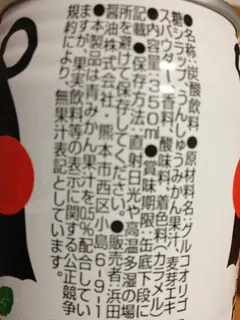 ●名称:炭酸飲料●原材料名:グルコオリゴ
糖シラップ、うんしゅうみかん果汁、麦芽エキ
スパウダー、香料、酸味料、着色料(カラメル
●内容量:350ml●賞味期限:缶底下段に
記載●保存方法:直射日光や高温多湿の場
所を避けて保存してください。●販売者:浜田
醤油株式会社・熊本市西区小島6-9-1
●本製品は青みかん果汁を0.5%配合してい
ますが、果実飲料等の表示に関する公正競争
規約により、無果汁表記としています。